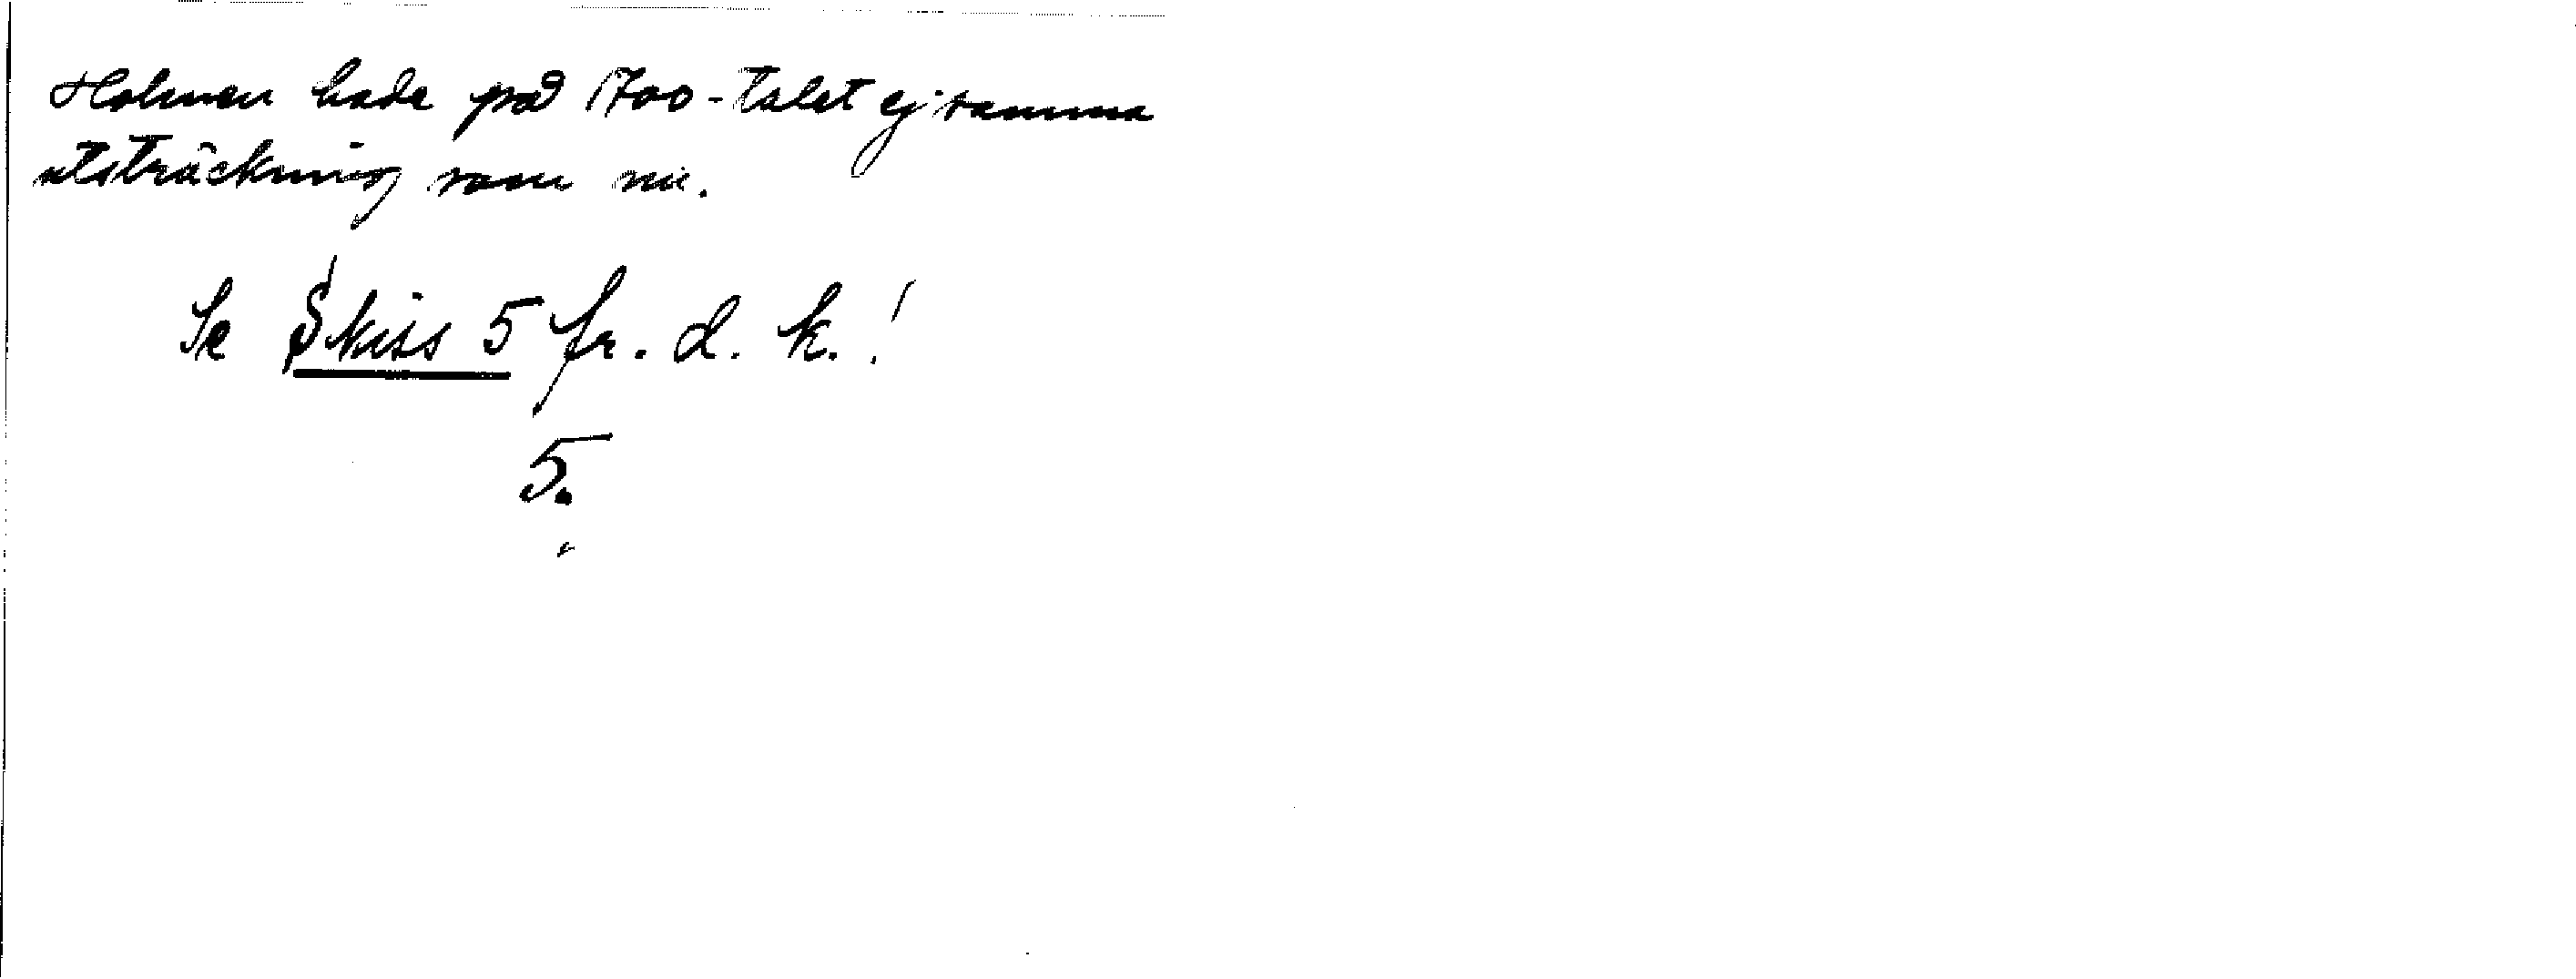 Holmen hade på 1700-talet ej samma
utsträckning som nu.
Se Skiss 5 fr. d. k.!
5.